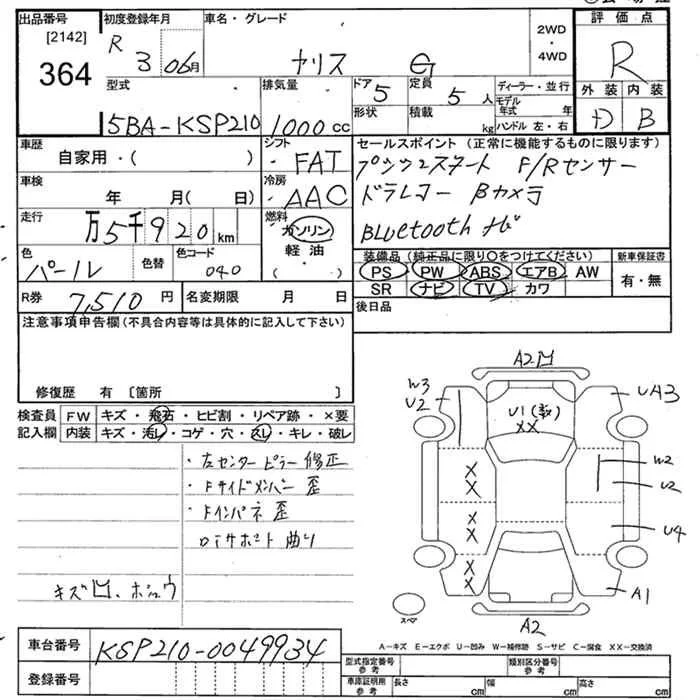 出品番号
[2142]
364
初度登録年月
R 3 06月
車名・グレード
ヤリス G
2WD
・
4WD
評価点
R
外装 内装
D B
型式
5BA-KSP210
排気量
1000 cc
ドア 5
形状
定員 5 人
積載 kg
ディーラー・並行
モデル年式 年
ハンドル 左・右
車歴
自家用・( )
シフト
・FAT
車検
年 月( 日)
冷房
・AAC
走行
万5千920km
燃料
ガソリン
・
軽油
・
( )
色
パール
色替
色コード
040
セールスポイント(正常に機能するものに限ります)
プッシュスタート F/Rセンサー
ドラレコー Bカメラ
Bluetooth ナビ
装備品(純正品に限り○をつけてください)
PS PW ABS エアB AW
SR ナビ TV カワ
新車保証書
有・無
R券 7,510 円
名変期限 月 日
後日品
注意事項申告欄(不具合内容等は具体的に記入して下さい)
修復歴 有〔箇所 〕
検査員 FW キズ・飛石・ヒビ割・リペア跡・×要
記入欄 内装 キズ・汚レ・コゲ・穴・スレ・キレ・破レ
・左センターピラー 修正
・Fサイドメンバー 歪
・Fインパネ 歪
ロアサポート 曲り
キズ凹、ホシュウ
A2凹
W3
U2
U1(数)
XX
UA3
W2
U2
XX
XX
U4
XX
A1
スペア
A2
A-キズ E-エクボ U-凹み W-補修跡 S-サビ C-腐食 XX-交換済
車台番号 KSP210-0049934
登録番号
型式指定番号 参考
類別区分番号 参考
車庫証明用 参考
長さ cm 幅 cm 高さ cm